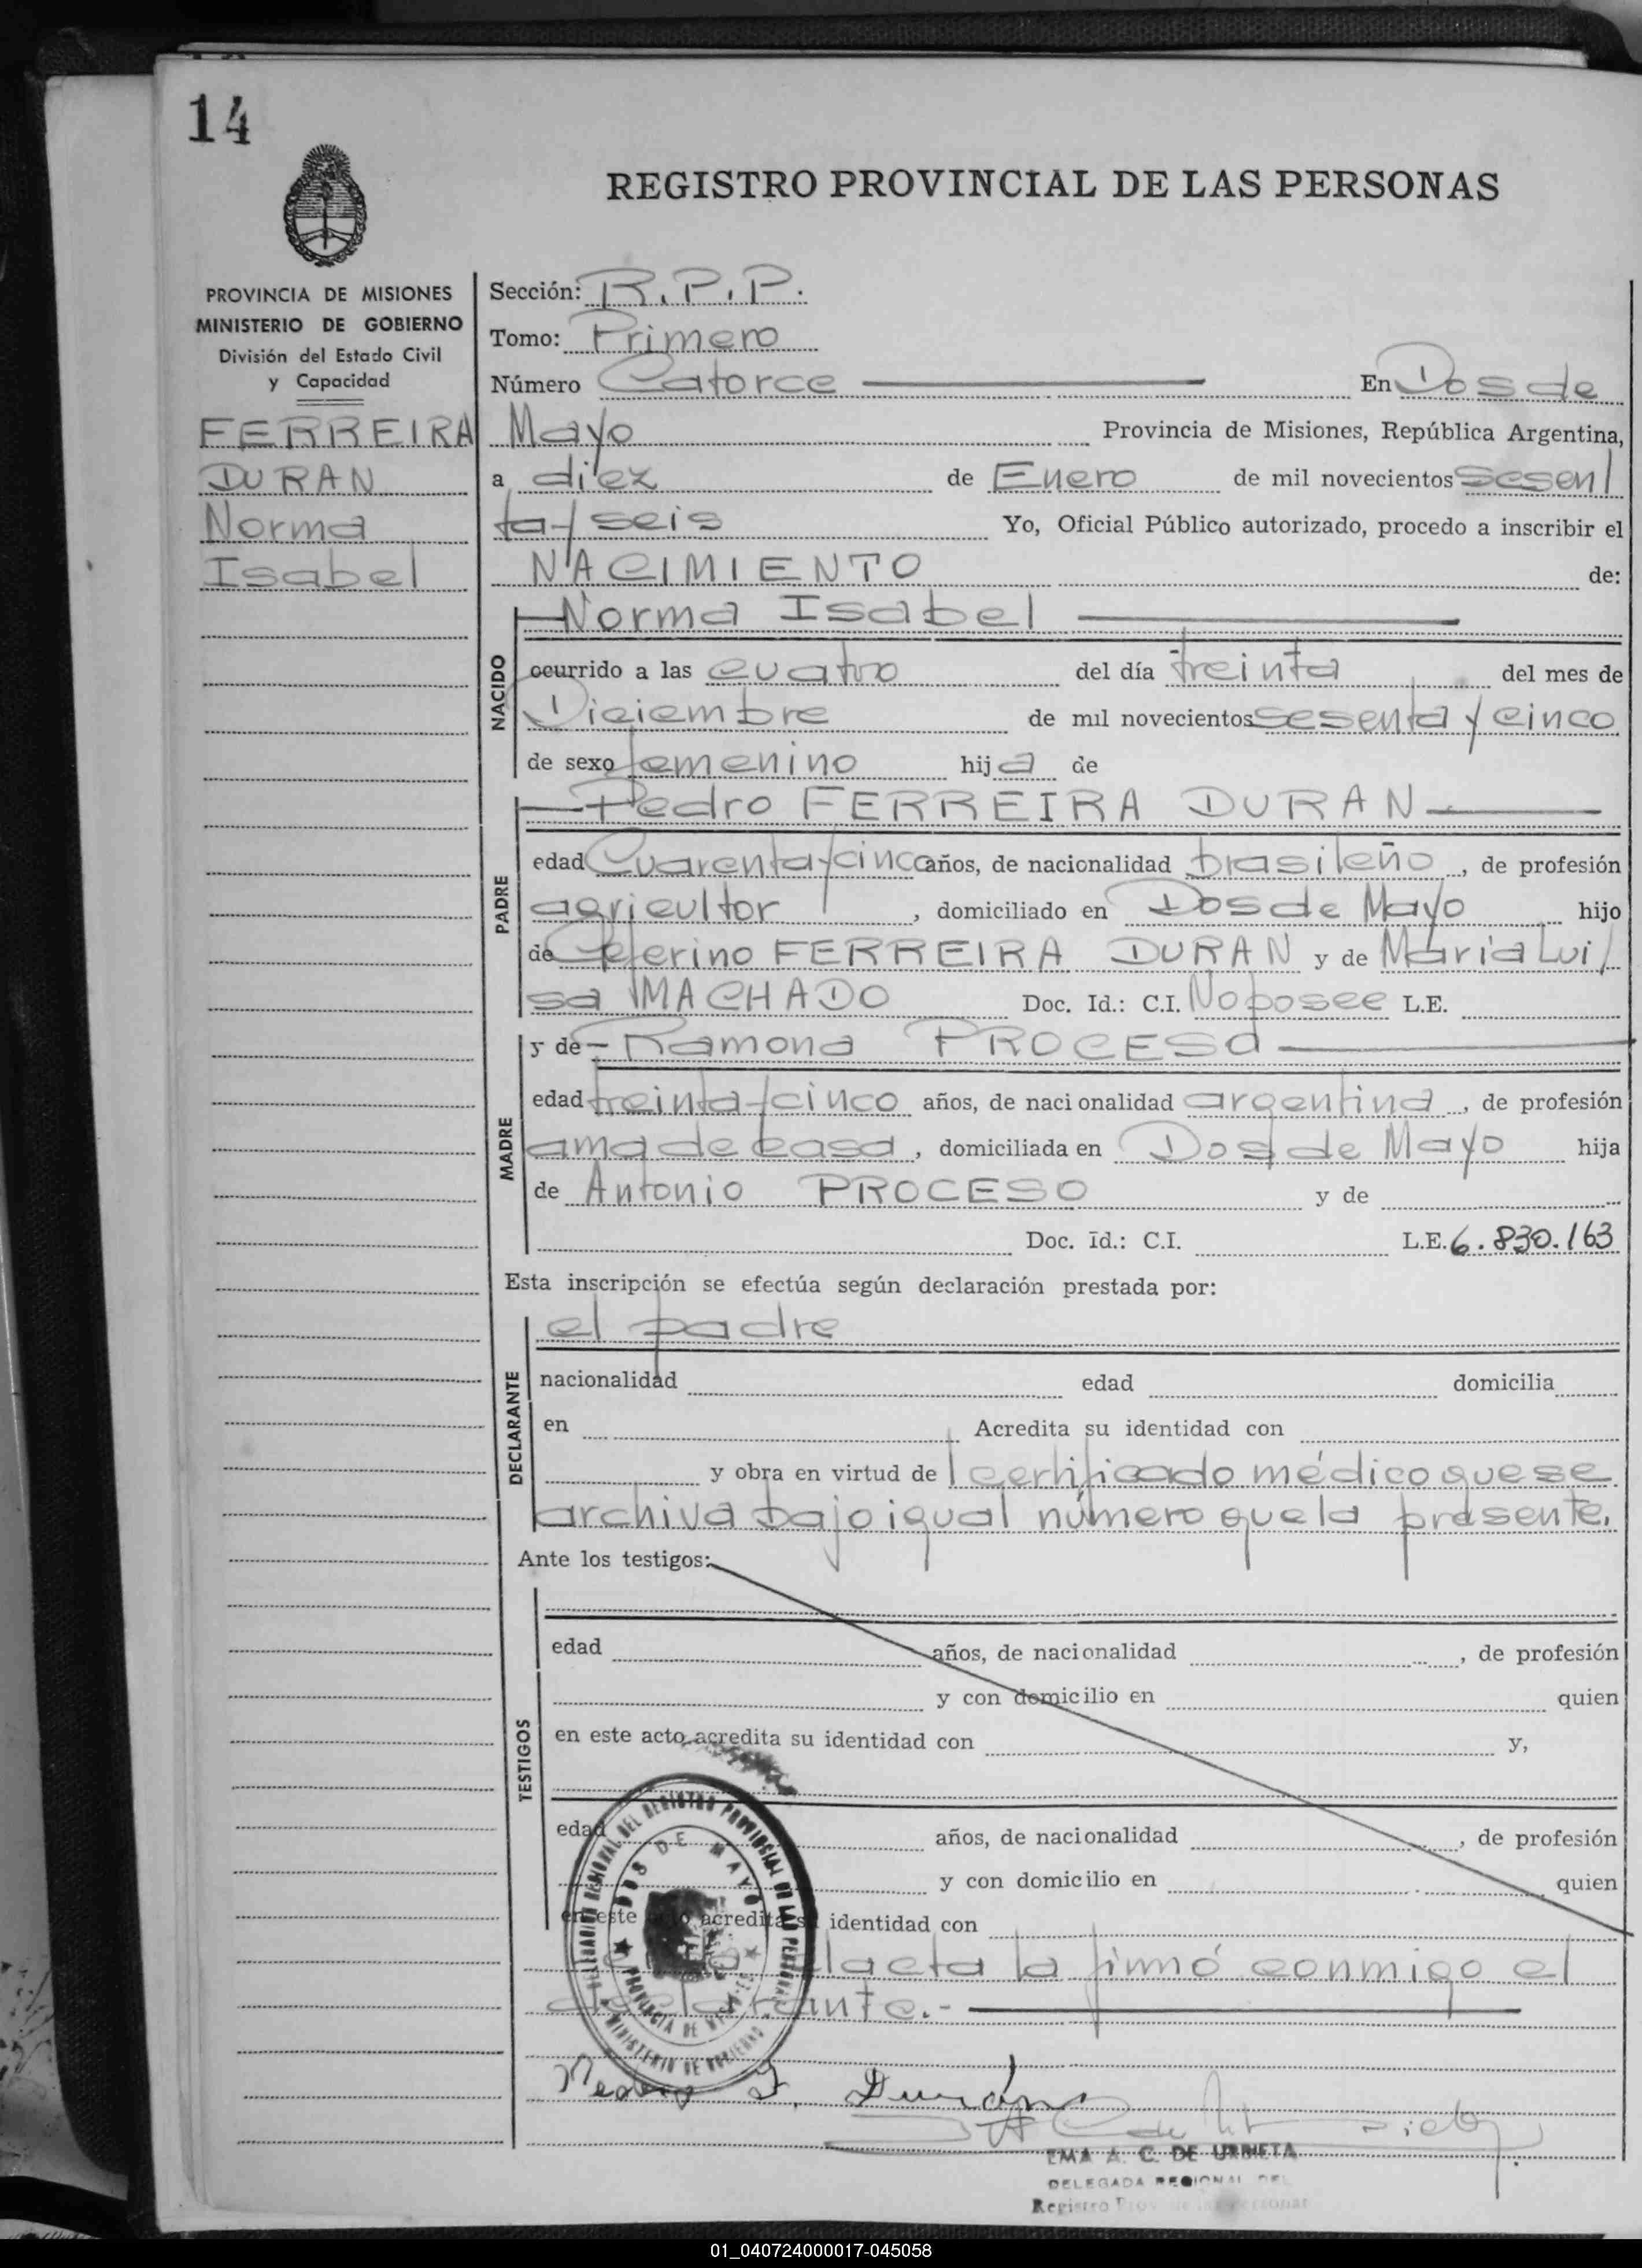 14
REGISTRO PROVINCIAL DE LAS PERSONAS
PROVINCIA DE MISIONES
MINISTERIO DE GOBIERNO
División del Estado Civil
y Capacidad
FERREIRA
DURAN
Norma
Isabel
Sección: R.P.P.
Tomo: Primero
Número Catorce En Dos de
Mayo Provincia de Misiones, República Argentina,
a diez de Enero de mil novecientos sesen/
ta y seis Yo, Oficial Público autorizado, procedo a inscribir el
NACIMIENTO de:
NACIDO
Norma Isabel
ocurrido a las cuatro del día treinta del mes de
Diciembre de mil novecientos sesenta y cinco
de sexo femenino hija de
PADRE
Pedro FERREIRA DURAN
edad Cuarenta y cinco años, de nacionalidad brasileño, de profesión
agricultor, domiciliado en Dos de Mayo hijo
de Ceferino FERREIRA DURAN y de Maria Lui/
sa MACHADO Doc. Id.: C.I. No posee L.E.
MADRE
y de Ramona PROCESO
edad treinta y cinco años, de nacionalidad argentina, de profesión
ama de casa, domiciliada en Dos de Mayo hija
de Antonio PROCESO y de
Doc. Id.: C.I. L.E. 6.830.163
Esta inscripción se efectúa según declaración prestada por:
DECLARANTE
el padre
nacionalidad edad domicilia
en Acredita su identidad con
y obra en virtud del certificado médico que se
archiva bajo igual número que la presente.
Ante los testigos:
TESTIGOS
edad años, de nacionalidad , de profesión
y con domicilio en quien
en este acto acredita su identidad con y,
edad años, de nacionalidad , de profesión
y con domicilio en quien
en este acto acredita su identidad con
el acta la firmó conmigo el
declarante.-
DELEGACION REGIONAL DEL REGISTRO PROVINCIAL DE LAS PERSONAS
DOS DE MAYO
PROVINCIA DE MISIONES
MINISTERIO DE GOBIERNO
Pedro F. Durán
EMA A. C. DE URRIETA
DELEGADA REGIONAL DEL
Registro Prov. de las Personas
01_040724000017-045058